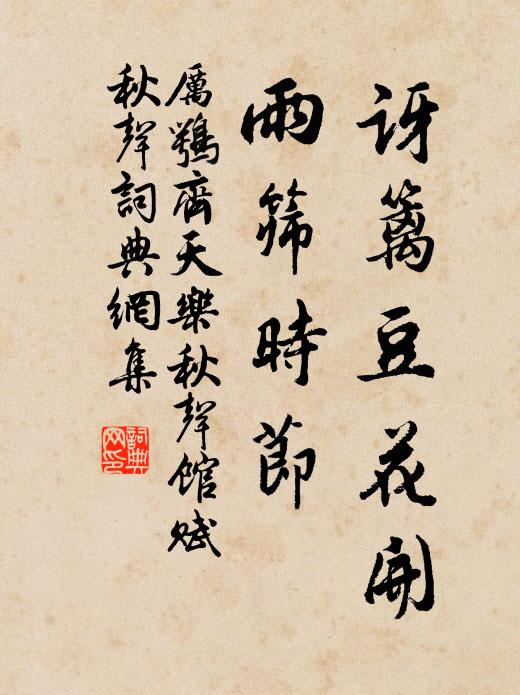 訝籬豆花開
雨篩時節
厲鶚齊天樂秋聲館賦
秋聲詞典網集
詞典網印